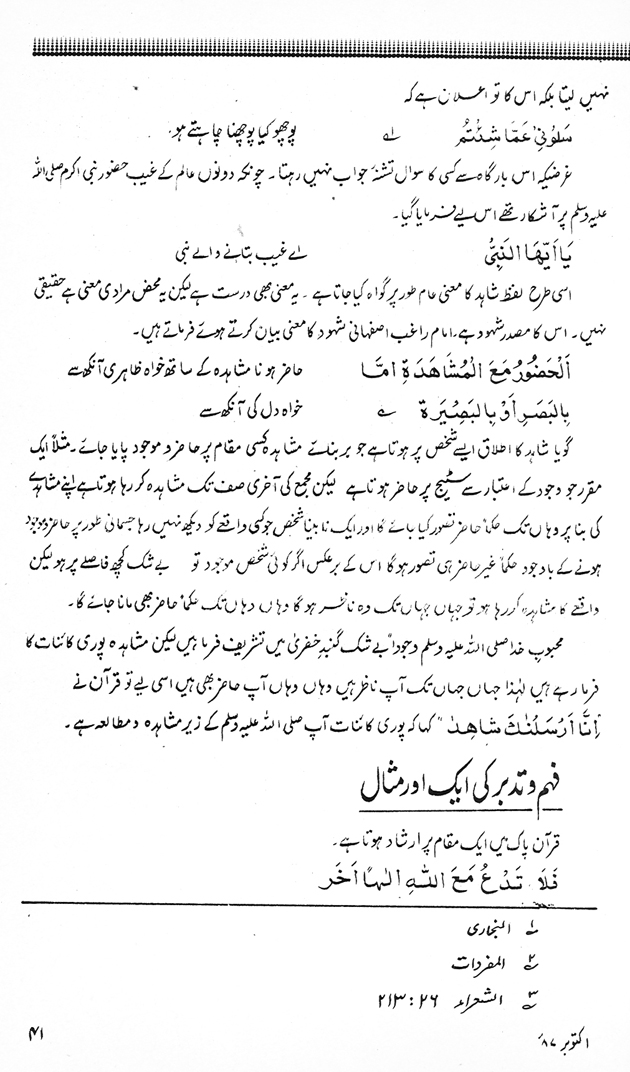 نہیں لیتا بلکہ اس کا تو اعلان ہے کہ
سَلُوْنِیْ عَمَّا شِئْتُمْ ۱ پوچھو کیا پوچھنا چاہتے ہو۔
غرضیکہ اس بارگاہ سے کسی کا سوال تشنۂ جواب نہیں رہتا۔ چونکہ دونوں عالم کے غیب حضور نبی اکرم صلی اللہ
علیہ وسلم پر آشکار تھے اس لیے فرمایا گیا۔
یَا اَیُّھَا النَّبِیُّ اے غیب بتانے والے نبی
اسی طرح لفظ شاہد کا معنی عام طور پر گواہ کیا جاتا ہے۔ یہ معنی بھی درست ہے لیکن یہ محض مرادی معنی ہے حقیقی
نہیں۔ اس کا مصدر شہود ہے۔ امام راغب اصفہانی شہود کا معنی بیان کرتے ہوئے فرماتے ہیں۔
اَلْحُضُوْرُ مَعَ الْمُشَاھَدَۃِ اِمَّا حاضر ہونا مشاہدہ کے ساتھ خواہ ظاہری آنکھ سے
بِالْبَصَرِ اَوْ بِالْبَصِیْرَۃِ ۲ خواہ دل کی آنکھ سے
گویا شاہد کا اطلاق ایسے شخص پر ہوتا ہے جو بربنائے مشاہدہ کسی مقام پر حاضر و موجود پایا جائے۔ مثلاً ایک
مقرر جو وجود کے اعتبار سے سٹیج پر حاضر ہوتا ہے لیکن مجمع کی آخری صف تک مشاہدہ کر رہا ہوتا ہے اپنے مشاہدے
کی بنا پر وہاں تک حکماً حاضر تصور کیا جائے گا اور ایک نابینا شخص جو کسی واقعے کو دیکھ نہیں رہا جسمانی طور پر حاضر و موجود
ہونے کے باوجود حکماً غیر حاضر ہی تصور ہو گا اس کے برعکس اگر کوئی شخص موجود تو بے شک کچھ فاصلے پر ہو لیکن
واقعے کا مشاہدہ کر رہا ہو تو جہاں جہاں تک وہ ناظر ہو گا وہاں وہاں تک حکماً حاضر بھی مانا جائے گا۔
محبوب خدا صلی اللہ علیہ وسلم وجوداً بے شک گنبد خضریٰ میں تشریف فرما ہیں لیکن مشاہدہ پوری کائنات کا
فرما رہے ہیں لہٰذا جہاں جہاں تک آپ ناظر ہیں وہاں وہاں آپ حاضر بھی ہیں اسی لیے تو قرآن نے
اِنَّا اَرْسَلْنٰكَ شَاهِدًا کہا کہ پوری کائنات آپ صلی اللہ علیہ وسلم کے زیر مشاہدہ و مطالعہ ہے۔
فہم و تدبر کی ایک اور مثال
قرآن پاک میں ایک مقام پر ارشاد ہوتا ہے۔
فَلَا تَدْعُ مَعَ اللّٰهِ اِلٰهًا اٰخَرَ
۱ البخاری
۲ المفردات
۳ الشعراء ۲۶ : ۲۱۳
اکتوبر ۸۷ء
۴۱